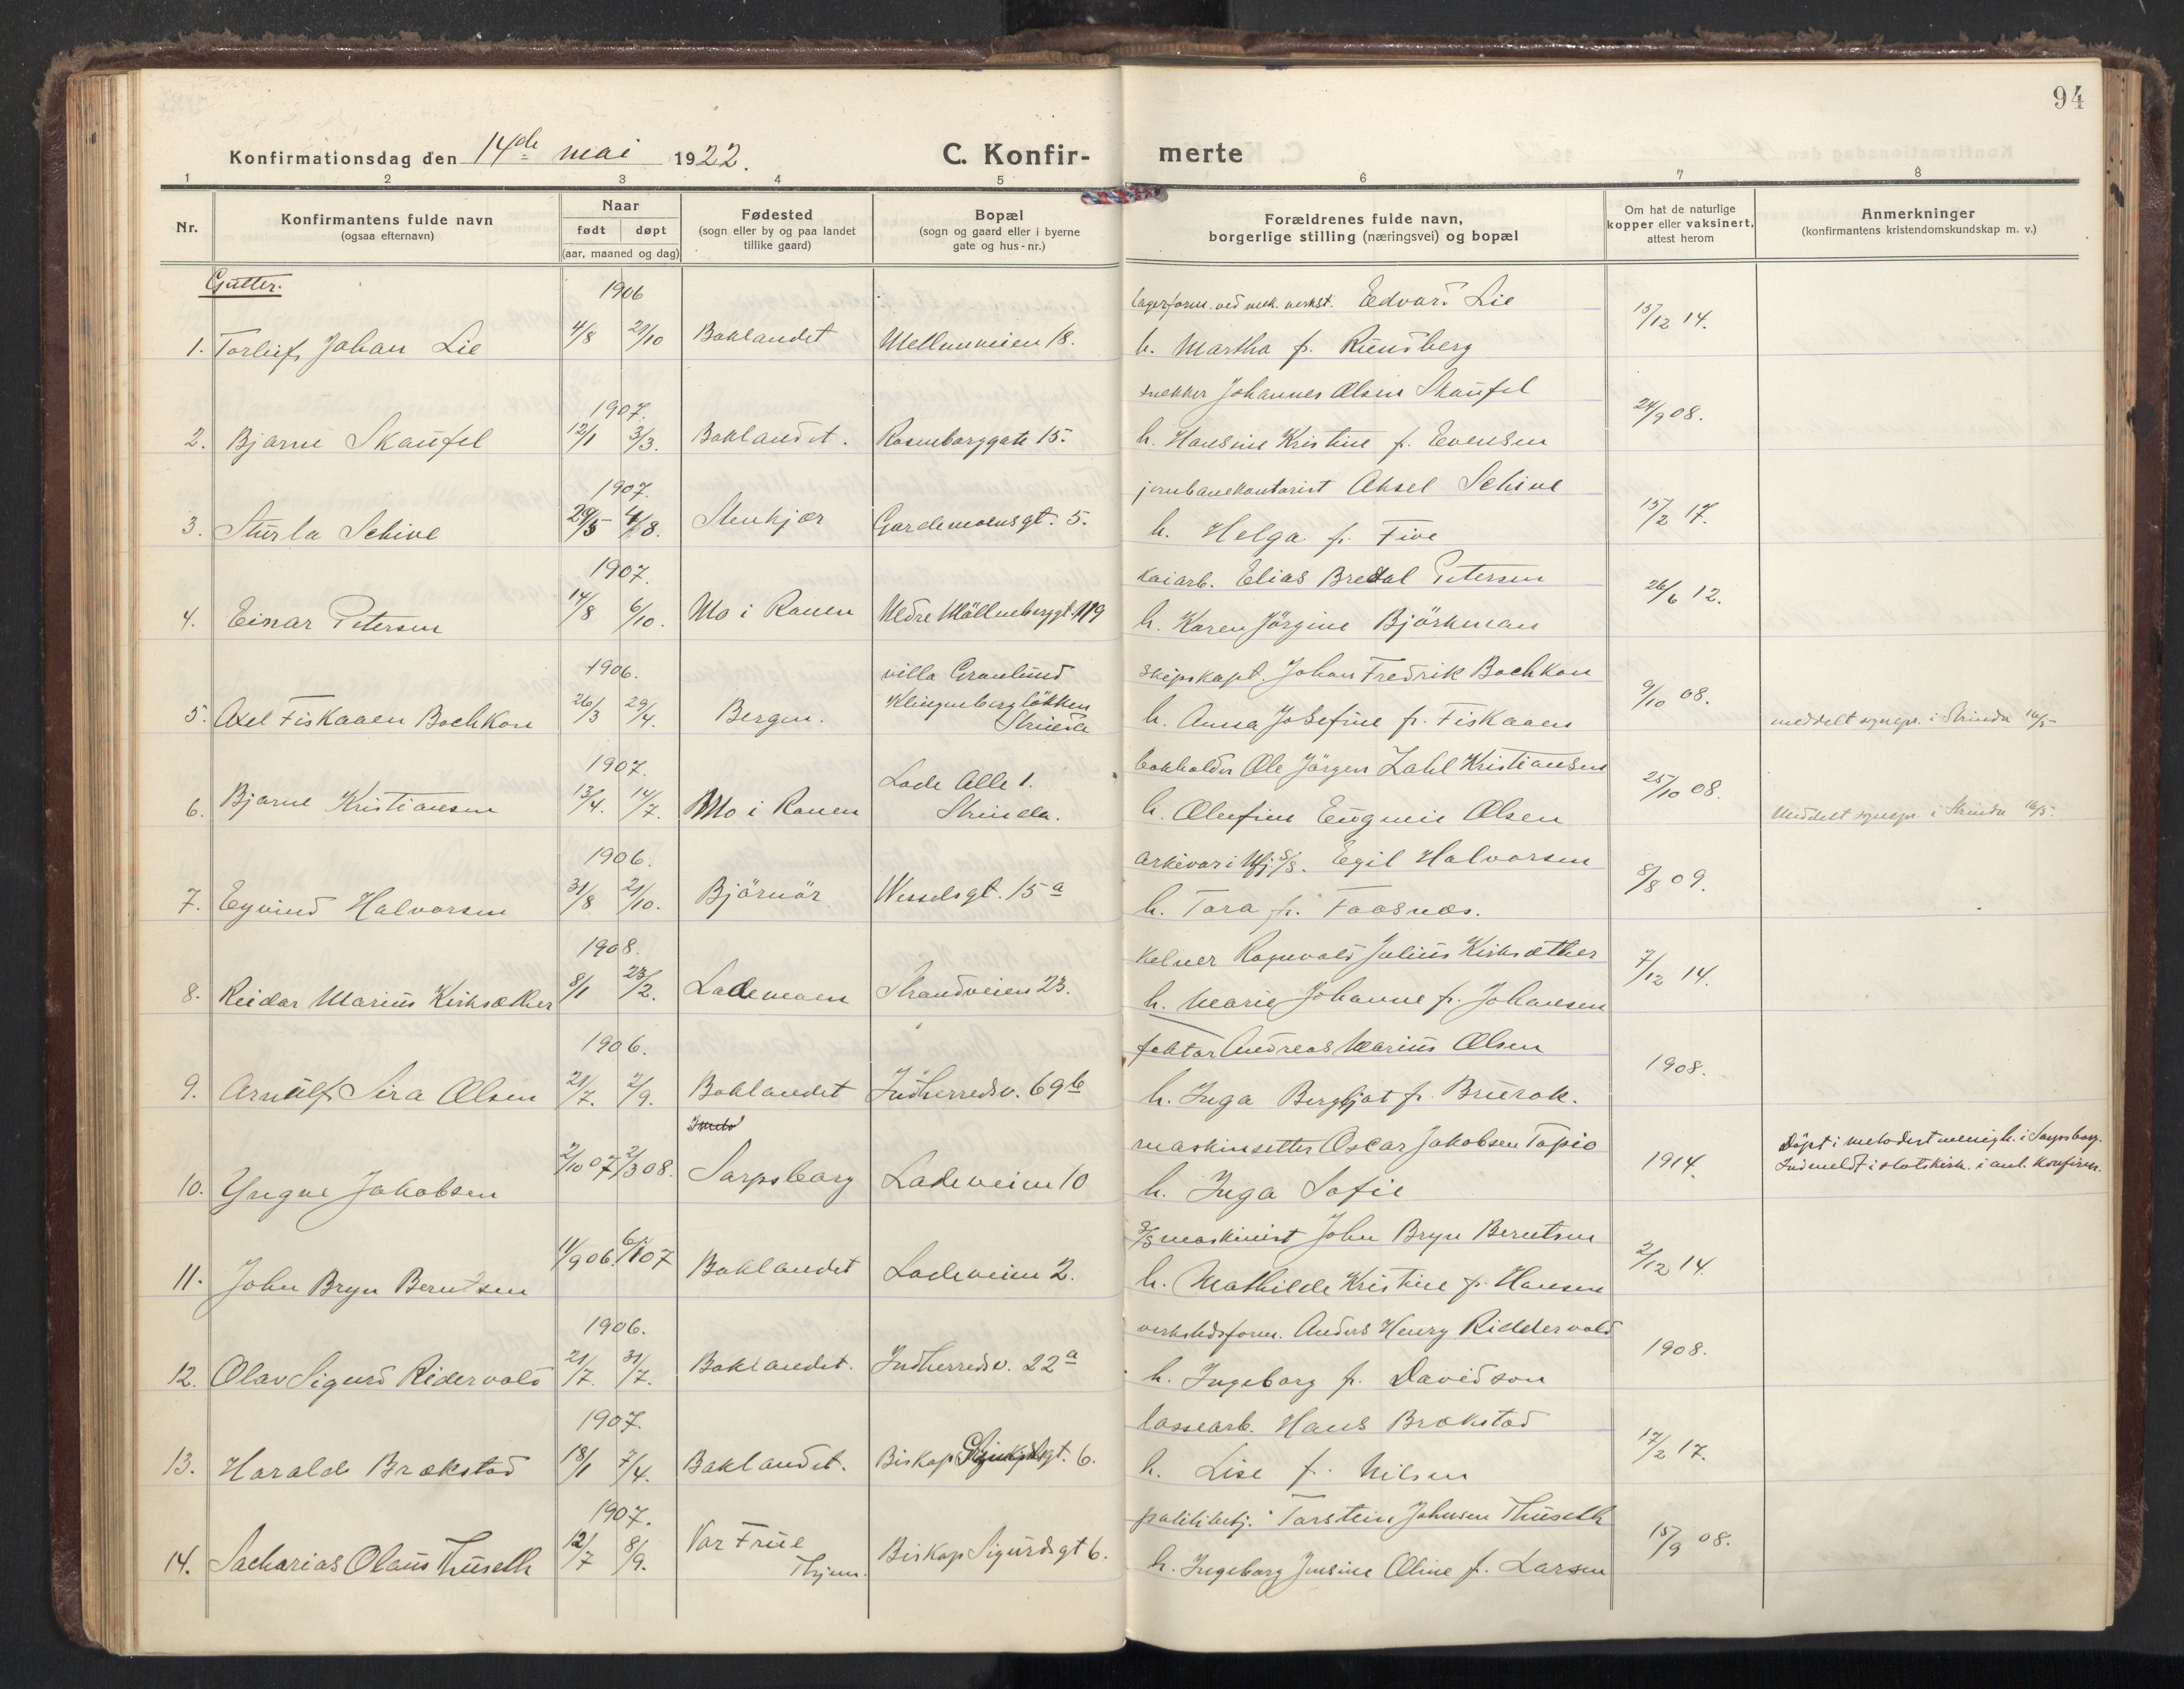 94
Konfirmationsdag den 14de mai 1922.
C. Konfir-
merte
1 2 3 4 5 6 7 8
Nr.
Konfirmantens fulde navn
(ogsaa efternavn)
Naar
født døpt
(aar, maaned og dag)
Fødested
(sogn eller by og paa landet
tillike gaard)
Bopæl
(sogn og gaard eller i byerne
gate og hus-nr.)
Forældrenes fulde navn,
borgerlige stilling (næringsvei) og bopæl
Om hat de naturlige
kopper eller vaksinert,
attest herom
Anmerkninger
(konfirmantens kristendomskundskap m. v.)
Gutter.
1906
lagerform. ved mek. verkst. Edvard Lie
15/12 14.
1. Torleif Johan Lie 4/8 21/10 Baklandet Mellemveien 18.
h. Martha f. Rundberg
1907.
snekker Johannes Olsen Skaufel
24/9 08.
2. Bjarne Skaufel 12/1 3/3. Baklandet. Rosenborggate 15.
h. Hansine Kristine f. Evensen
1907.
jernbanekontorist Aksel Schive
15/2 17.
3. Sturla Schive 29/5 4/8. Stenkjær Gardemoensgt. 5.
h. Helga f. Five
1907.
kaiarb. Elias Bredal Petersen
26/6 12.
4. Einar Petersen 14/8 6/10. Mo i Ranen Nedre Möllenberggt. 119
h. Karen Jörgine Björkman
1906.
villa Granlund
skipskapt. Johan Fredrik Bochkon
9/10 08.
5. Axel Fiskaaen Bochkon 26/3 29/4. Bergen. Klingenberglökken
Strinda
h. Anna Josefine f. Fiskaaen
meddelt sognepr. i Strinda 16/5
1907.
bokholder Ole Jörgen Zahl Kristiansen
25/10 08.
6. Bjarne Kristiansen 13/4. 14/7. Mo i Ranen Lade Alle 1.
Strinda.
h. Olufine Eugenie Olsen
Meddelt sognepr. i Strinda 16/5.
1906.
arkivar i Egil Halvorsen
8/8 09.
7. Eyvind Halvorsen 31/8 21/10. Björnör Wesselsgt. 15 a
h. Tora f. Faasnæs.
1908.
kelner Ragnvald Julius Kirksæther
7/12 14.
8. Reidar Marius Kirksæther 8/1 23/2. Lademoen Strandveien 23.
h. Marie Johanne f. Johansen
1906.
faktor Andreas Marius Olsen
1908.
9. Arnulf Sira Olsen 21/7. 2/9. Baklandet Indherredsv. 69 b
h. Inga Bergljot f. Brurok.
maskinsetter Oscar Jakobsen Tapio
1914.
Döpt i metodistmenigh. i Sarpsborg.
Indmeldt i statskirk. i anl. konfirm.
10. Yngve Jakobsen 2/10 07 2/3 08. Sarpsborg Ladeveien 10
h. Inga Sofie
maskinist John Bryn Berntsen
2/12 14.
11. John Bryn Berntsen 11/9 06. 6/1 07 Baklandet Ladeveien 2.
h. Mathilde Kristine f. Hansen
1906.
verkstedsform. Anders Henry Riddervold
1908.
12. Olav Sigurd Ridervold 21/7. 31/7. Baklandet. Indherredsv. 22 a
h. Ingeborg f. Davidson
1907.
lossearb. Hans Brækstad
17/2 17.
13. Harald Brækstad 18/1 7/4. Baklandet. Biskop gt. 6.
h. Lise f. Nilsen
1907.
politibetj. Torstein Johnsen Thuseth
15/9 08.
14. Sacharias Olaus Thuseth 12/7 8/9. Vor Frue
Thjem. Biskop Sigurdsgt 6.
h. Ingeborg Jensine Oline f. Larsen